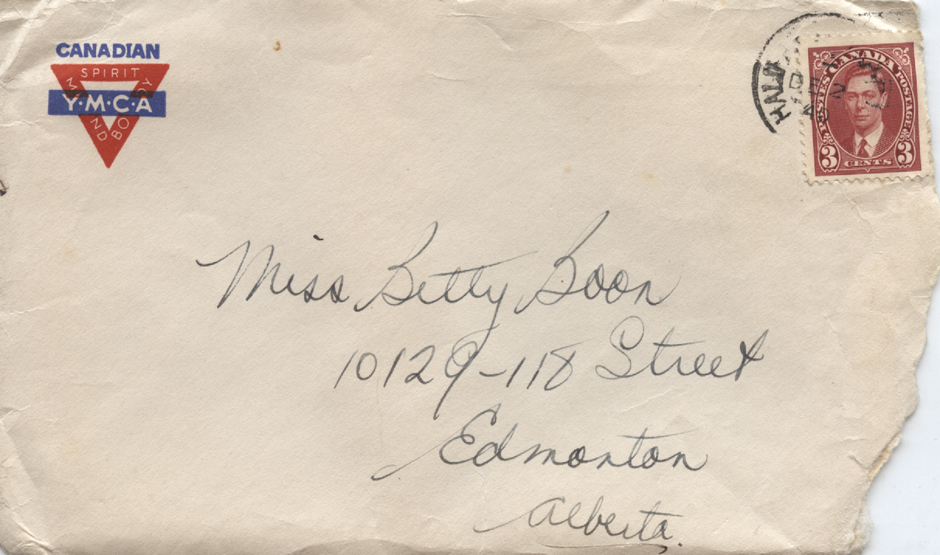 CANADIAN
SPIRIT
MIND BODY
Y·M·C·A
CANADA
POSTES POSTAGE
3 CENTS 3
Miss Betty Boon
10129-118 Street
Edmonton
Alberta.